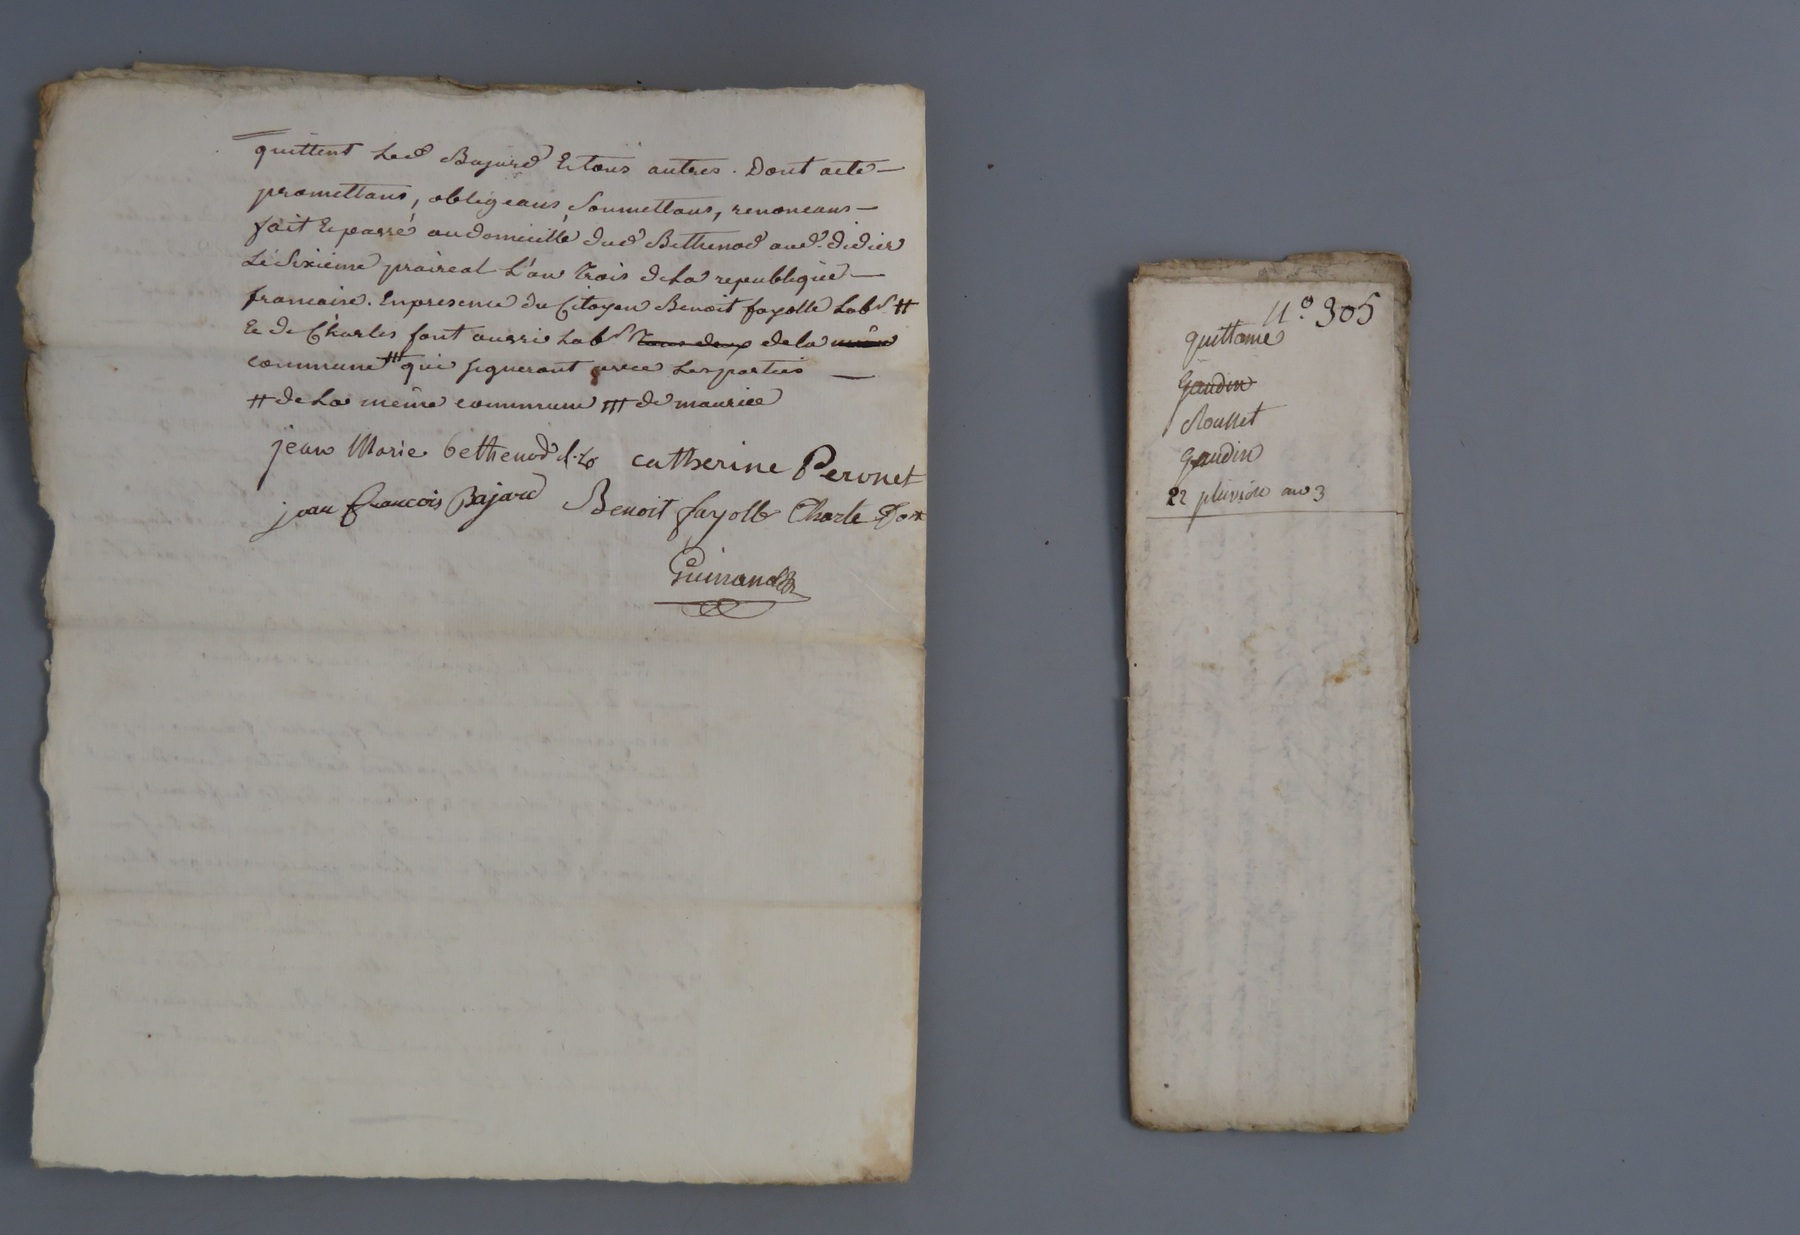 quittent led Bajard Et tous autres. Dont acte —
promettans, obligeans, soumettans, renoncans —
fait Et passé au domicille dud Bethenod aud. didier
Le Sixieme praireal L'an Trois de La republique —
francaise. En presence du Citoyen Benoit fayolle Labr #
Et de Charles font aussi Labr tous deux de la même
commune ### qui signeront avec Les parties —
# de La même commune ### de maurice
jean Marie bethenod catherine Peronet
jean Francois Bajard Benoit fayolle Charle Font
Guinand
n.º 305
quittance
Gaudin
Rousset
Gaudin
22 pluviose an 3